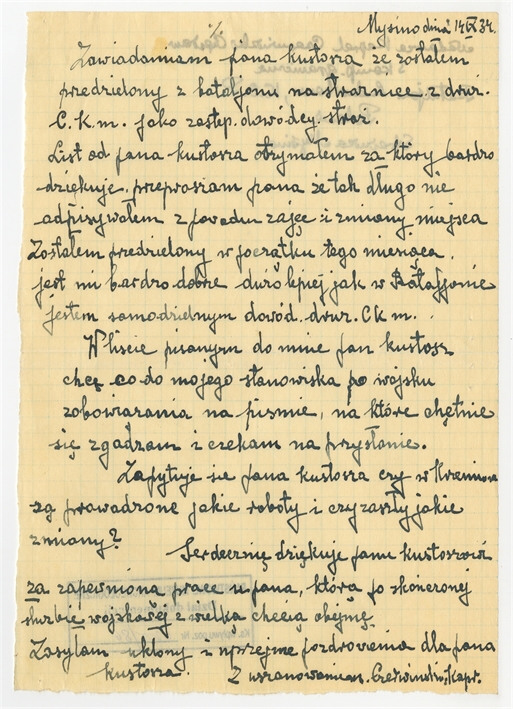 Mysino dnia 14 IX 34.
Zawiadamiam pana kustosza że zostałem
przedzielony z bataljonu na strarnice z druż.
C.k.m. jako zastęp. dowódcy straż.
List od pana kustosza otrzymałem za który bardzo
dziękuje, przepraszam pana że tak długo nie
odpisywałem z powodu zajęć i zmiany miejsca
Zostałem przedzielony w początku tego miesiąca.
jest mi bardzo dobrze dużo lepiej jak w Bataljonie
jestem samodzielnym dowód. druż. Ckm.
W liscie pisanym do mnie pan kustosz
chcę co do mojego stanowiska po wojsku
zobowiazania na pismie, na które chętnie
się zgadzam i czekam na przysłanie.
Zapytuje sie pana kustosza czy w
są prowadzone jakie roboty i czy zaszły jakie
zmiany?
Serdecznię dziękuje panu kustoszowi
za zapewniona prace u pana, którą po skonczonej
służbie wojskowej z wielka checią obejmę.
Zasyłam ukłony i uprzejme pozdrowienia dla pana
kustosza. Z uszanowaniem. Kapr.